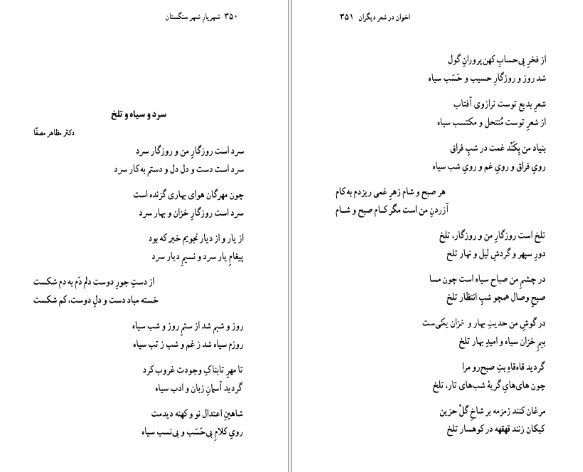 ۳۵۰ شهریار شهر سنگستان
سرد و سیاه و تلخ
دکتر مظاهر مصفّا
سرد است روزگارِ من و روزگار سرد
سرد است دست و دل دل و دستم به کار سرد
چون مهرگان هوای بهاری گزنده است
سرد است روزگارِ خزان و بهار سرد
از یار و از دیار نجویم خبر که بود
پیغامِ یار سرد و نسیمِ دیار سرد
از دستِ جورِ دوست دلم دَم به دم شکست
خسته مباد دست و دلِ دوست، کم شکست
روز و شبم شد از ستمِ روز و شب سیاه
روزم سیاه شد ز غم و شب ز تب سیاه
تا مهرِ تابناکِ وجودت غروب کرد
گردید آسمانِ زبان و ادب سیاه
شاهینِ اعتدالِ نو و کهنه دیدمت
رویِ کلامِ بی‌حَسَب و بی‌نسب سیاه
اخوان در شعر دیگران ۳۵۱
از فخرِ بی‌حسابِ کهن پرورانِ گول
شد روز و روزگارِ حسیب و حَسَب سیاه
شعرِ بدیع توست ترازوی آفتاب
از شعرِ توست مُنتحل و مکتسب سیاه
بنیاد من بِکَنْد غمت در شبِ فراق
رویِ فراق و رویِ غم و رویِ شب سیاه
هر صبح و شام زهرِ غمی ریزدم به کام
آزردنِ من است مگر کـام صبح و شـام
تلخ است روزگارِ من و روزگار، تلخ
دورِ سپهر و گردشِ لیل و نهار تلخ
در چشمِ من صباح سیاه است چون مسا
صبحِ وصال همچو شبِ انتظار تلخ
در گوشِ من حدیثِ بهار و خزان یکی‌ست
بیمِ خزان سیاه و امیدِ بهار تلخ
گردید قاه‌قاهِ بتِ صبح‌رو مرا
چون های‌هایِ گریهٔ شب‌های تار، تلخ
مرغان کنند زمزمه بر شاخِ گلْ حزین
کبکان زنند قهقهه در کوهسار تلخ